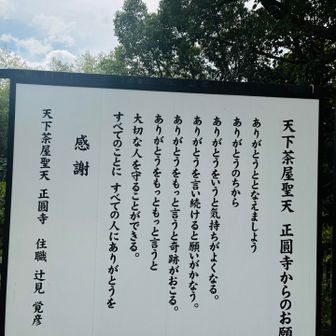 天下茶屋聖天 正圓寺からのお願
ありがとうととなえましょう
ありがとうのちから
ありがとうをいうと気持ちがよくなる。
ありがとうを言い続けると願いがかなう。
ありがとうをもっと言うと奇跡がおこる。
ありがとうをもっともっと言うと
大切な人を守ることができる。
すべてのことに すべての人にありがとうを
感謝
天下茶屋聖天 正圓寺 住職 辻見 覚彦